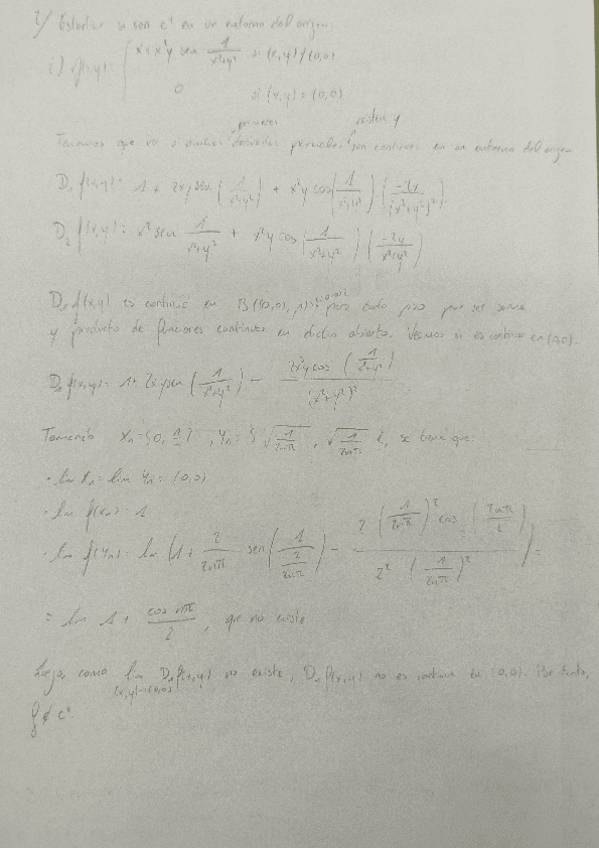 2) Estudiar si son C¹ en un entorno del origen:
i) f(x,y) = { x + x²y sen 1/(x²+y²) si (x,y) ≠ (0,0)
0 si (x,y) = (0,0)
Tenemos que ver si ambas derivadas primeras parciales existen y son continuas en un entorno del origen
D₁ f(x,y) = 1 + 2xy sen(1/(x²+y²)) + x²y cos(1/(x²+y²)) (-2x/(x²+y²)²)
D₂ f(x,y) = x² sen 1/(x²+y²) + x²y cos(1/(x²+y²)) (-2y/(x²+y²))
D₁ f(x,y) es continua en B((0,0), r) para todo r>0 por ser suma
y producto de funciones continuas en dicho abierto. Veamos si es continua en (0,0).
D₁ f(x,y) = 1 + 2xy sen(1/(x²+y²)) - 2x³y cos(1/(x²+y²))/(x²+y²)²
Tomando xₙ = {0, 1/n}, yₙ = {√(1/2nπ), √(1/2nπ)}, se tiene que:
• lim xₙ = lim yₙ = (0,0)
• lim f(xₙ) = 1
• lim f(yₙ) = lim (1 + 2/2nπ sen(1/(2/2nπ)) - 2(1/2nπ)² cos(2nπ/2)/(2² (1/2nπ)²)) =
= lim 1 + cos nπ/2, que no existe
Luego, como lim (x,y)→(0,0) D₁ f(x,y) no existe, D₁ f(x,y) no es continua en (0,0). Por tanto,
f ∉ C¹.